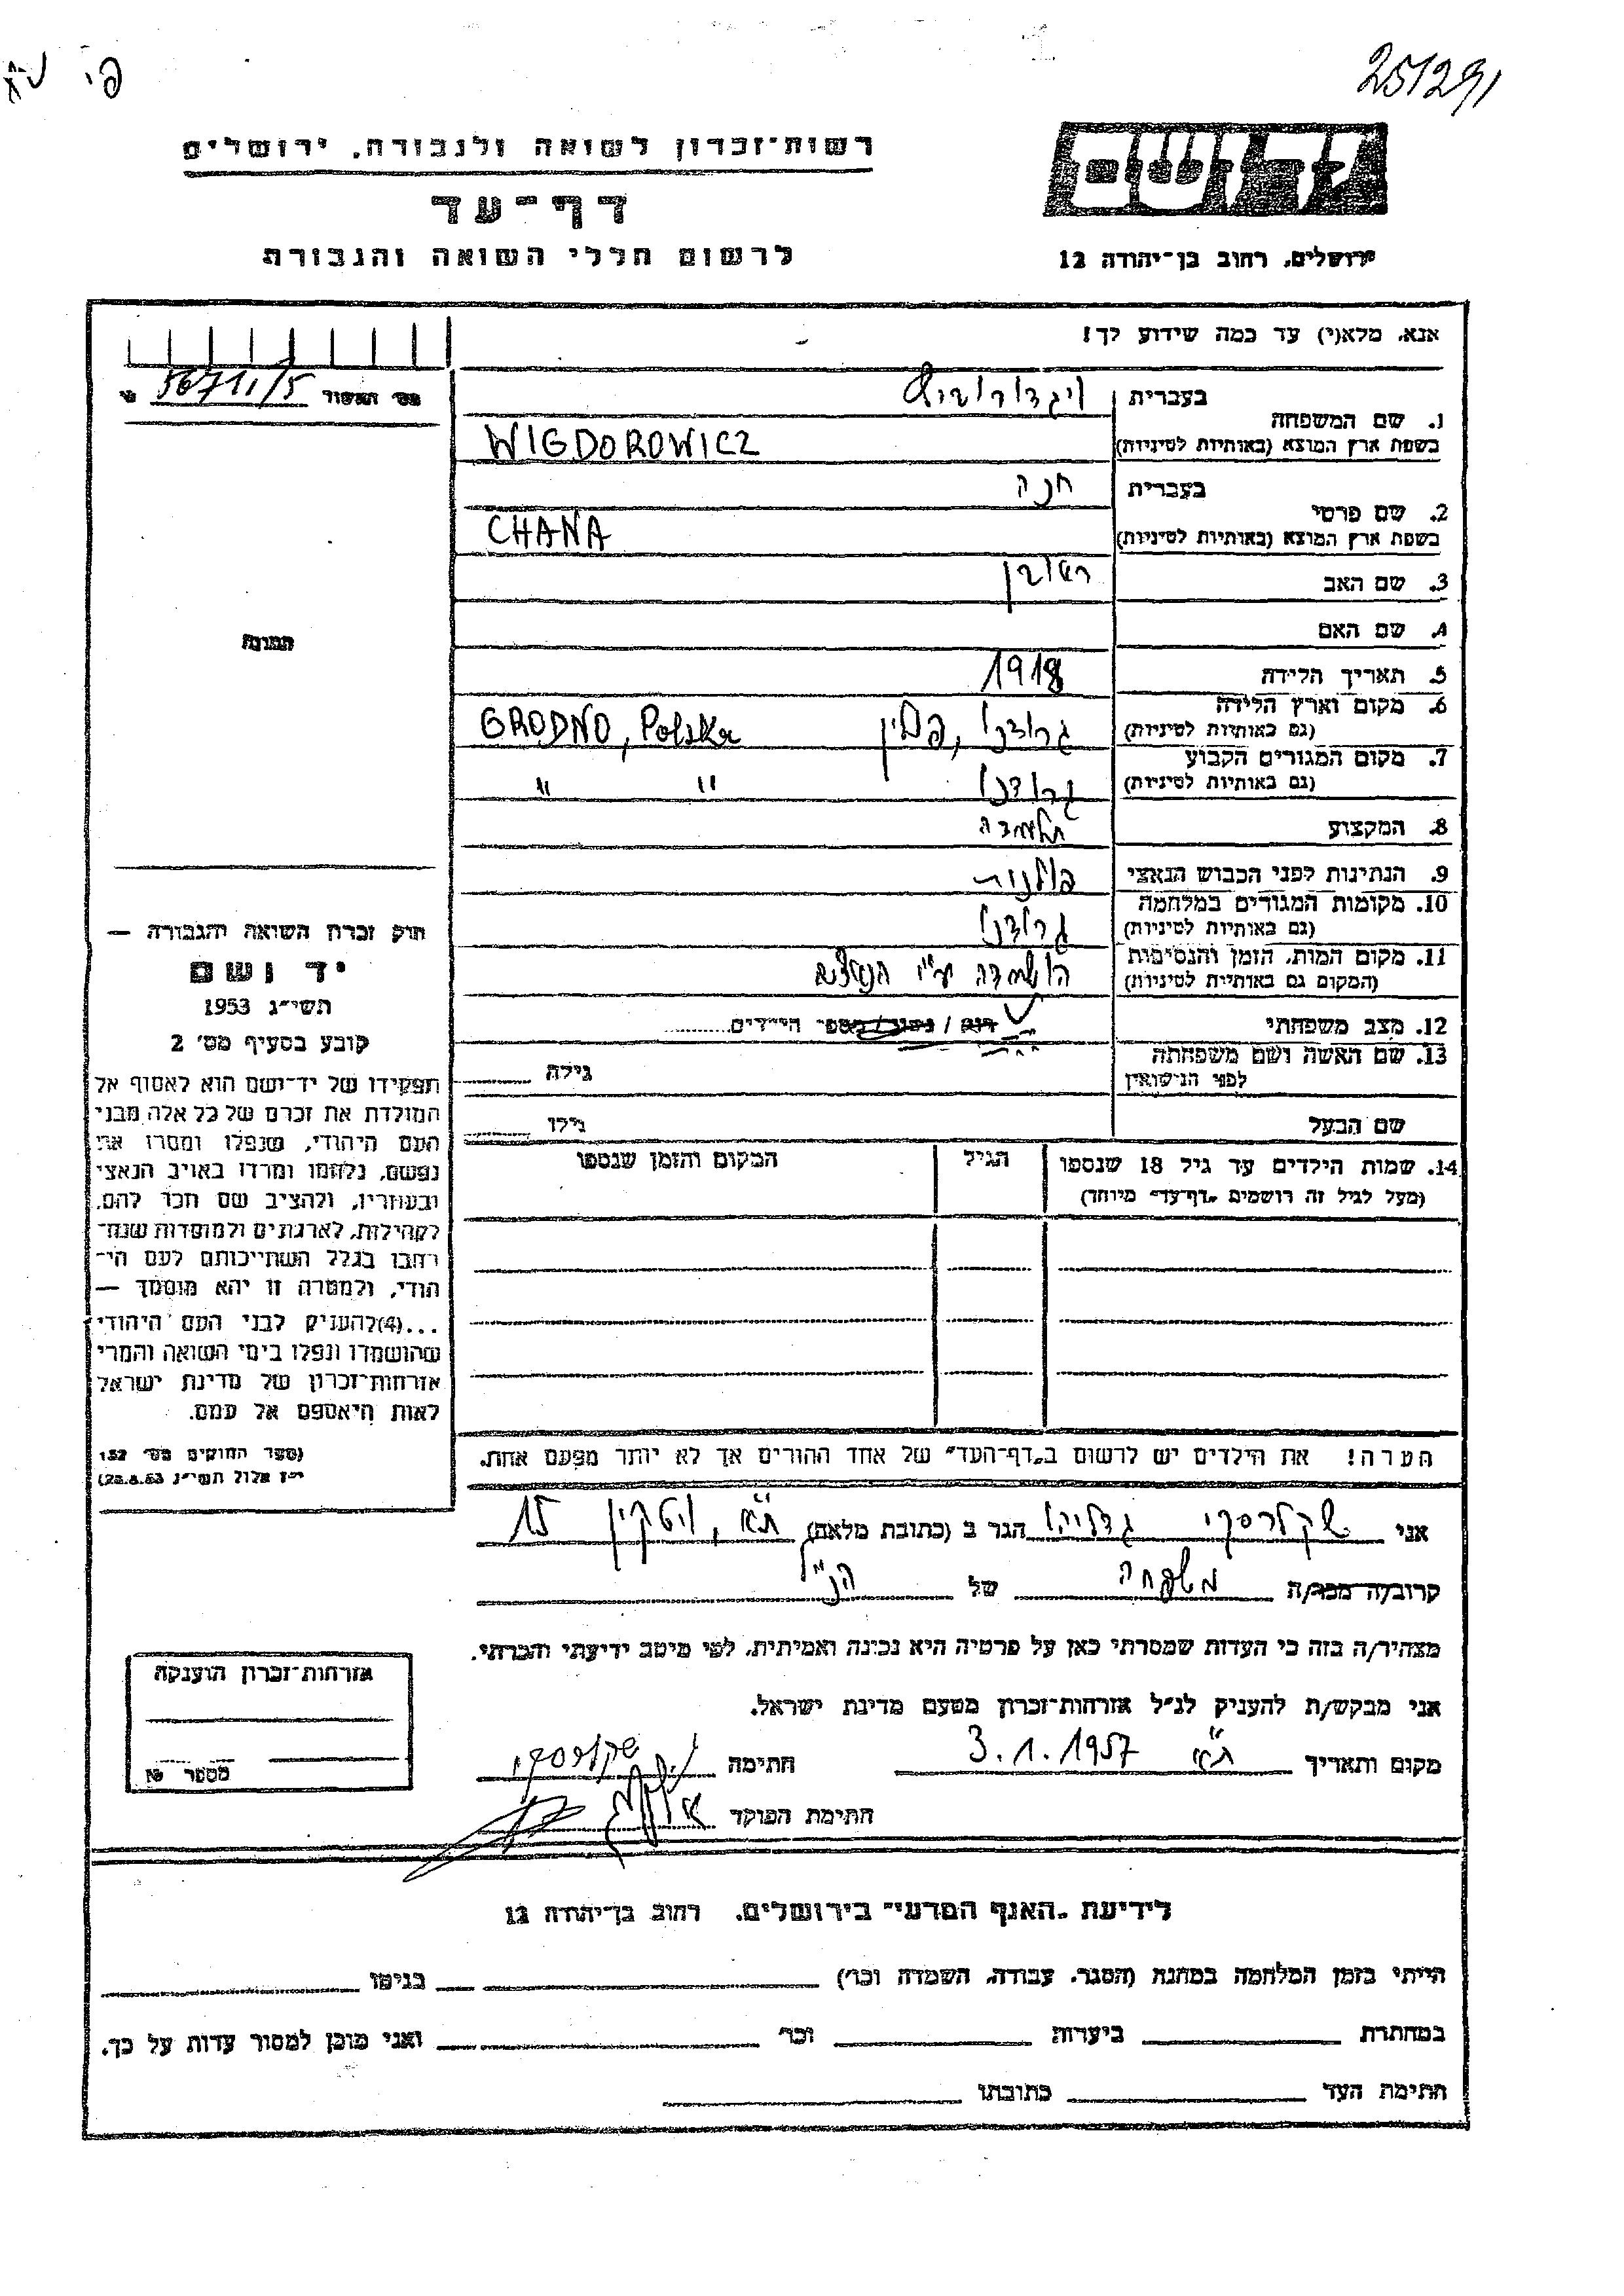 251291
רשות־זכרון לשואה ולגבורה, ירושלים
דף־עד
לרשום חללי השואה והגבורה
יד ושם
ירושלים, רחוב בן־יהודה 12
אנא, מלא(י) עד כמה שידוע לך!
1. שם המשפחה
בעברית ויגדורוביץ
בשפת ארץ המוצא (באותיות לטיניות) WIGDOROWICZ
2. שם פרטי
בעברית חנה
בשפת ארץ המוצא (באותיות לטיניות) CHANA
3. שם האב ראובן
4. שם האם
5. תאריך הלידה 1918
6. מקום וארץ הלידה
(גם באותיות לטיניות) גרודנו, פולין GRODNO, Polska
7. מקום המגורים הקבוע
(גם באותיות לטיניות) גרודנו " "
8. המקצוע תלמידה
9. הנתינות לפני הכבוש הנאצי פולנית
10. מקומות המגורים במלחמה
(גם באותיות לטיניות) גרודנו
11. מקום המות, הזמן והנסיבות
(המקום גם באותיות לטיניות) הושמדה ע"י הנאצים
12. מצב משפחתי רוק / נשוי / מספר הילדים
13. שם האשה ושם משפחתה
לפני הנישואין גילה
שם הבעל גילו
14. שמות הילדים עד גיל 18 שנספו הגיל המקום והזמן שנספו
(מעל לגיל זה רושמים "דף־עד" מיוחד)
הערה! את הילדים יש לרשום ב"דף־העד" של אחד ההורים אך לא יותר מפעם אחת.
התמונה
חוק זכרון השואה והגבורה —
יד ושם
תשי"ג 1953
קובע בסעיף מס' 2
תפקידו של יד־ושם הוא לאסוף אל
המולדת את זכרם של כל אלה מבני
העם היהודי, שנפלו ומסרו את
נפשם, נלחמו ומרדו באויב הנאצי
ובעוזריו, ולהציב שם וזכר להם,
לקהילות, לארגונים ולמוסדות שנח־
רבו בגלל השתייכותם לעם הי־
הודי, ולמטרה זו יהא מוסמך —
...(4) להעניק לבני העם היהודי
שהושמדו ונפלו בימי השואה והמרי
אזרחות־זכרון של מדינת ישראל
לאות היאספם אל עמם.
(ספר החוקים מס' 132
י"ז אלול תשי"ג 28.8.53)
אני שקלרסקי גדליהו הגר ב (כתובת מלאה) ת"א, ויטקין 15
קרוב/ה מכר/ה משפחה של הנ"ל
מצהיר/ה בזה כי העדות שמסרתי כאן על פרטיה היא נכונה ואמיתית, לפי מיטב ידיעתי והכרתי.
אני מבקש/ת להעניק לנ"ל אזרחות־זכרון מטעם מדינת ישראל.
מקום ותאריך ת"א 3.1.1957 חתימה ג. שקלרסקי
חתימת הפוקד
אזרחות־זכרון הוענקה
מספר
לידיעת "האגף המדעי" בירושלים, רחוב בן־יהודה 12
הייתי בזמן המלחמה במחנה (הסגר, עבודה, השמדה וכו') בגיטו
במחתרת ביערות וכו' ואני מוכן למסור עדות על כך.
חתימת העד כתובתו